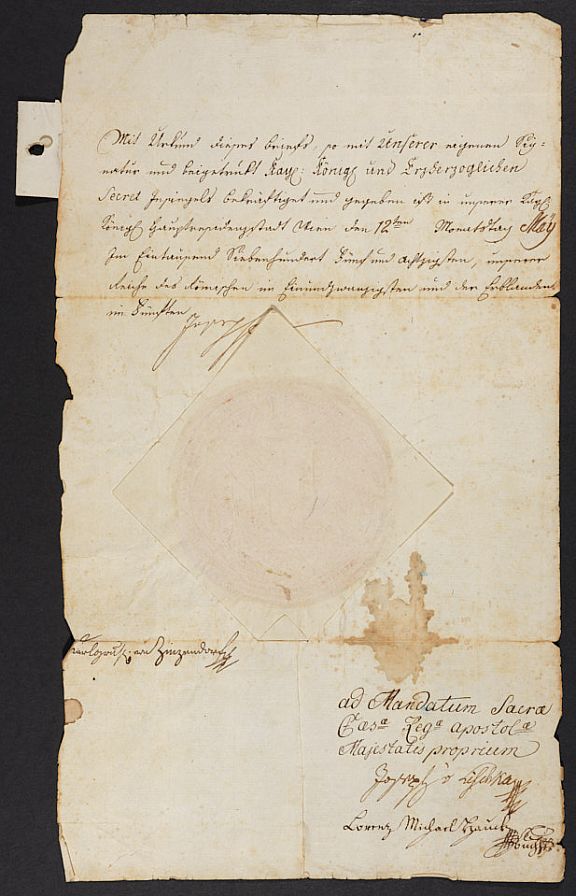 Mit Urkund dieses briefs, so mit Unserer eigenen Sig=
natur und beigetrukt Kayß: Königß und Erzherzoglichen
Secret Insiegels bekräftiget und gegeben ist in unserer Kayß
Königß Hauptresidenzstadt Wien den 12ten Monatstag May
Im Eintausend Siebenhundert Fünf und Achtzigsten, unserer
Reiche des Römischen im Einundzwanzigsten und der Erblanden
im Fünften
Joseph
Zinzendorf
ad Mandatum Sacræ
Cæs.æ Reg.æ Apostol.æ
Majestatis proprium
Joseph v
Lorenz Michael